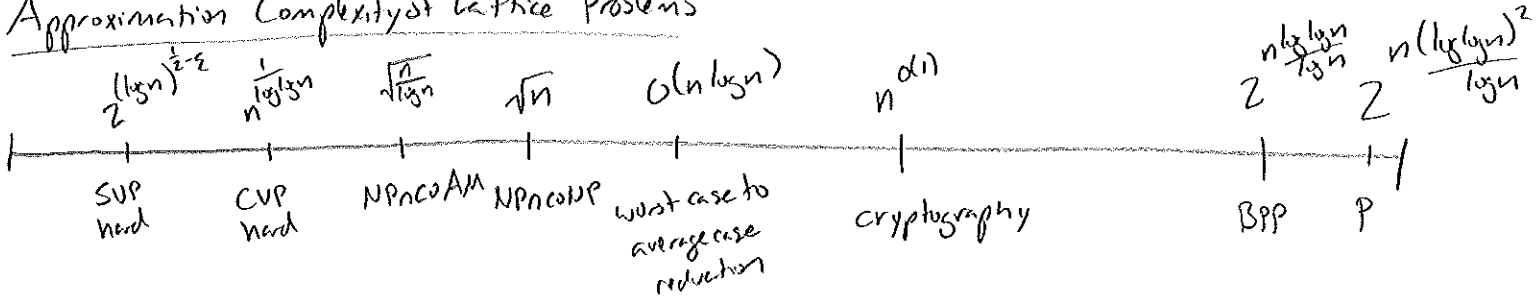 Approximation Complexity of Lattice Problems
2^{(log n)^{1/2-ε}} n^{1/log log n} √(n/log n) √n O(n log n) n^{O(1)} 2^{n log log n/log n} 2^{n(log log n)^2/log n}
SVP hard CVP hard NP∩coAM NP∩coNP worst case to average case reduction cryptography BPP P